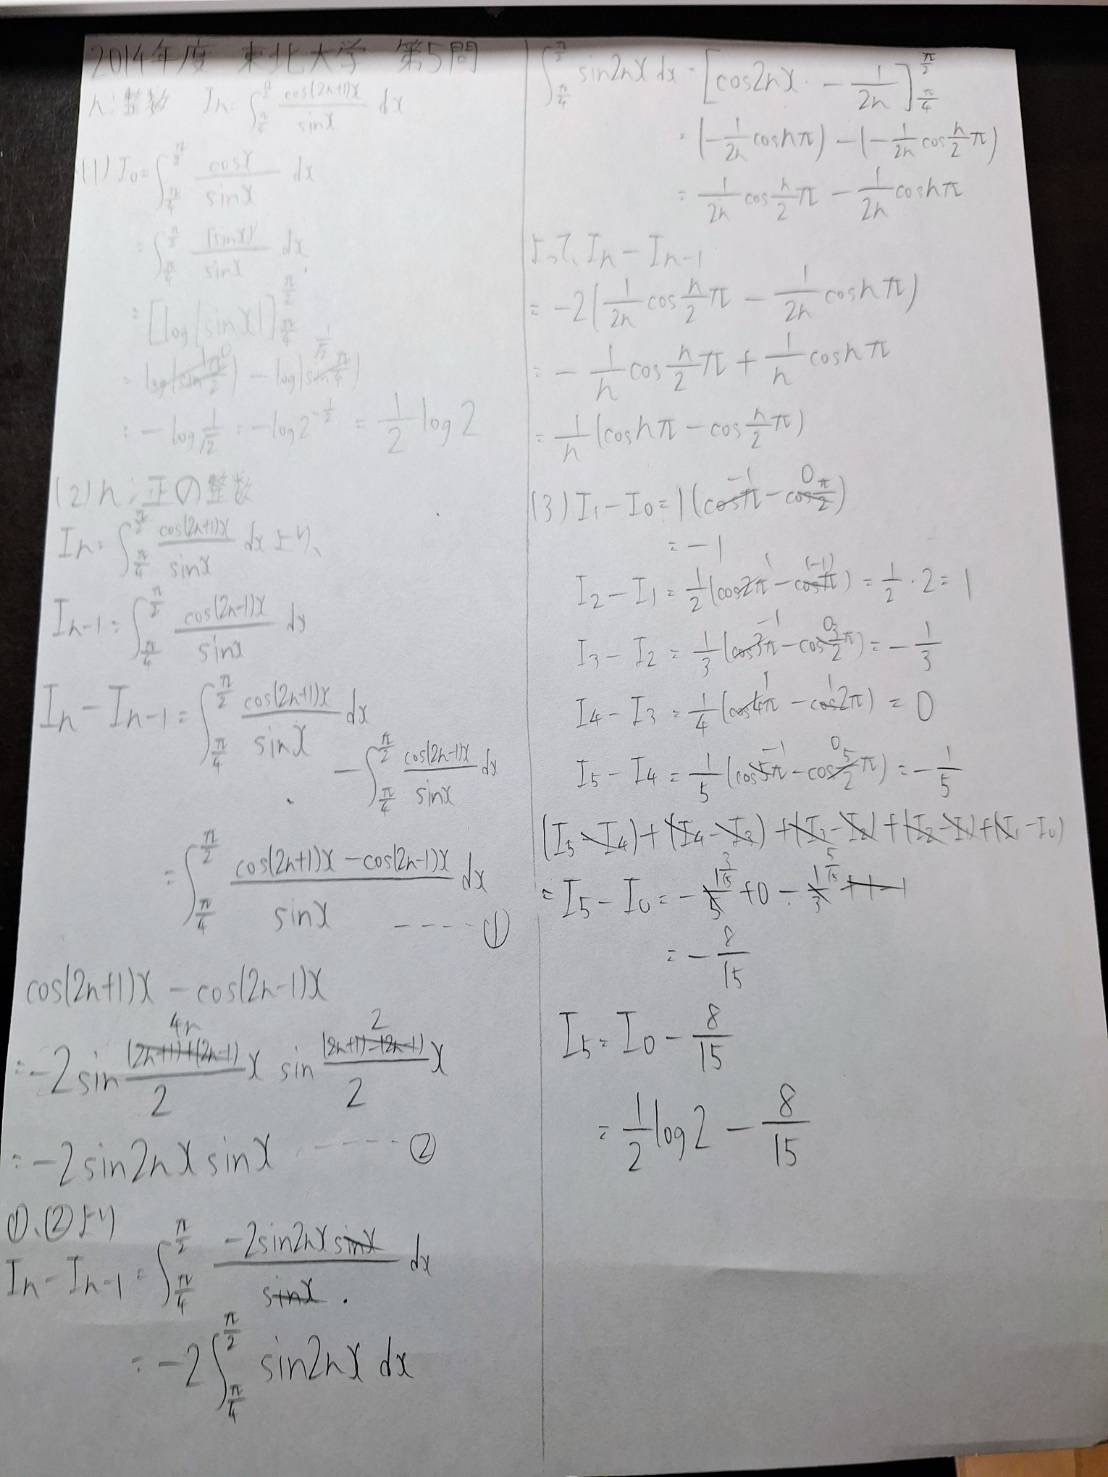 2014年度 東北大学 第5問
n:整数 In=∫_{π/4}^{π/2} cos(2n+1)x/sinx dx
(1) I0=∫_{π/4}^{π/2} cosx/sinx dx
=∫_{π/4}^{π/2} (sinx)'/sinx dx
=[log|sinx|]_{π/4}^{π/2}
=log|sin π/2| - log|sin π/4|
=-log 1/√2 = -log2^{-1/2} = 1/2 log2
(2) n:正の整数
In=∫_{π/4}^{π/2} cos(2n+1)x/sinx dx より、
In-1=∫_{π/4}^{π/2} cos(2n-1)x/sinx dx
In-In-1=∫_{π/4}^{π/2} cos(2n+1)x/sinx dx
-∫_{π/4}^{π/2} cos(2n-1)x/sinx dx
=∫_{π/4}^{π/2} cos(2n+1)x-cos(2n-1)x/sinx dx
----①
cos(2n+1)x-cos(2n-1)x
=-2sin (2n+1)+(2n-1)/2 x sin (2n+1)-(2n-1)/2 x
=-2sin2nx sinx ----②
①、②より
In-In-1=∫_{π/4}^{π/2} -2sin2nx sinx/sinx dx
=-2∫_{π/4}^{π/2} sin2nx dx
∫_{π/4}^{π/2} sin2nx dx=[cos2nx・-1/2n]_{π/4}^{π/2}
=(-1/2n cosnπ)-(-1/2n cos n/2 π)
=1/2n cos n/2 π - 1/2n cosnπ
よって、In-In-1
=-2(1/2n cos n/2 π - 1/2n cosnπ)
=-1/n cos n/2 π + 1/n cosnπ
=1/n (cosnπ-cos n/2 π)
(3) I1-I0=1(cosπ-cos π/2)
=-1
I2-I1=1/2(cos2π-cosπ)=1/2・2=1
I3-I2=1/3(cos3π-cos 3/2 π)=-1/3
I4-I3=1/4(cos4π-cos2π)=0
I5-I4=1/5(cos5π-cos 5/2 π)=-1/5
(I5-I4)+(I4-I3)+(I3-I2)+(I2-I1)+(I1-I0)
=I5-I0=-1/5+0-1/3+1-1
=-8/15
I5=I0-8/15
=1/2 log2-8/15